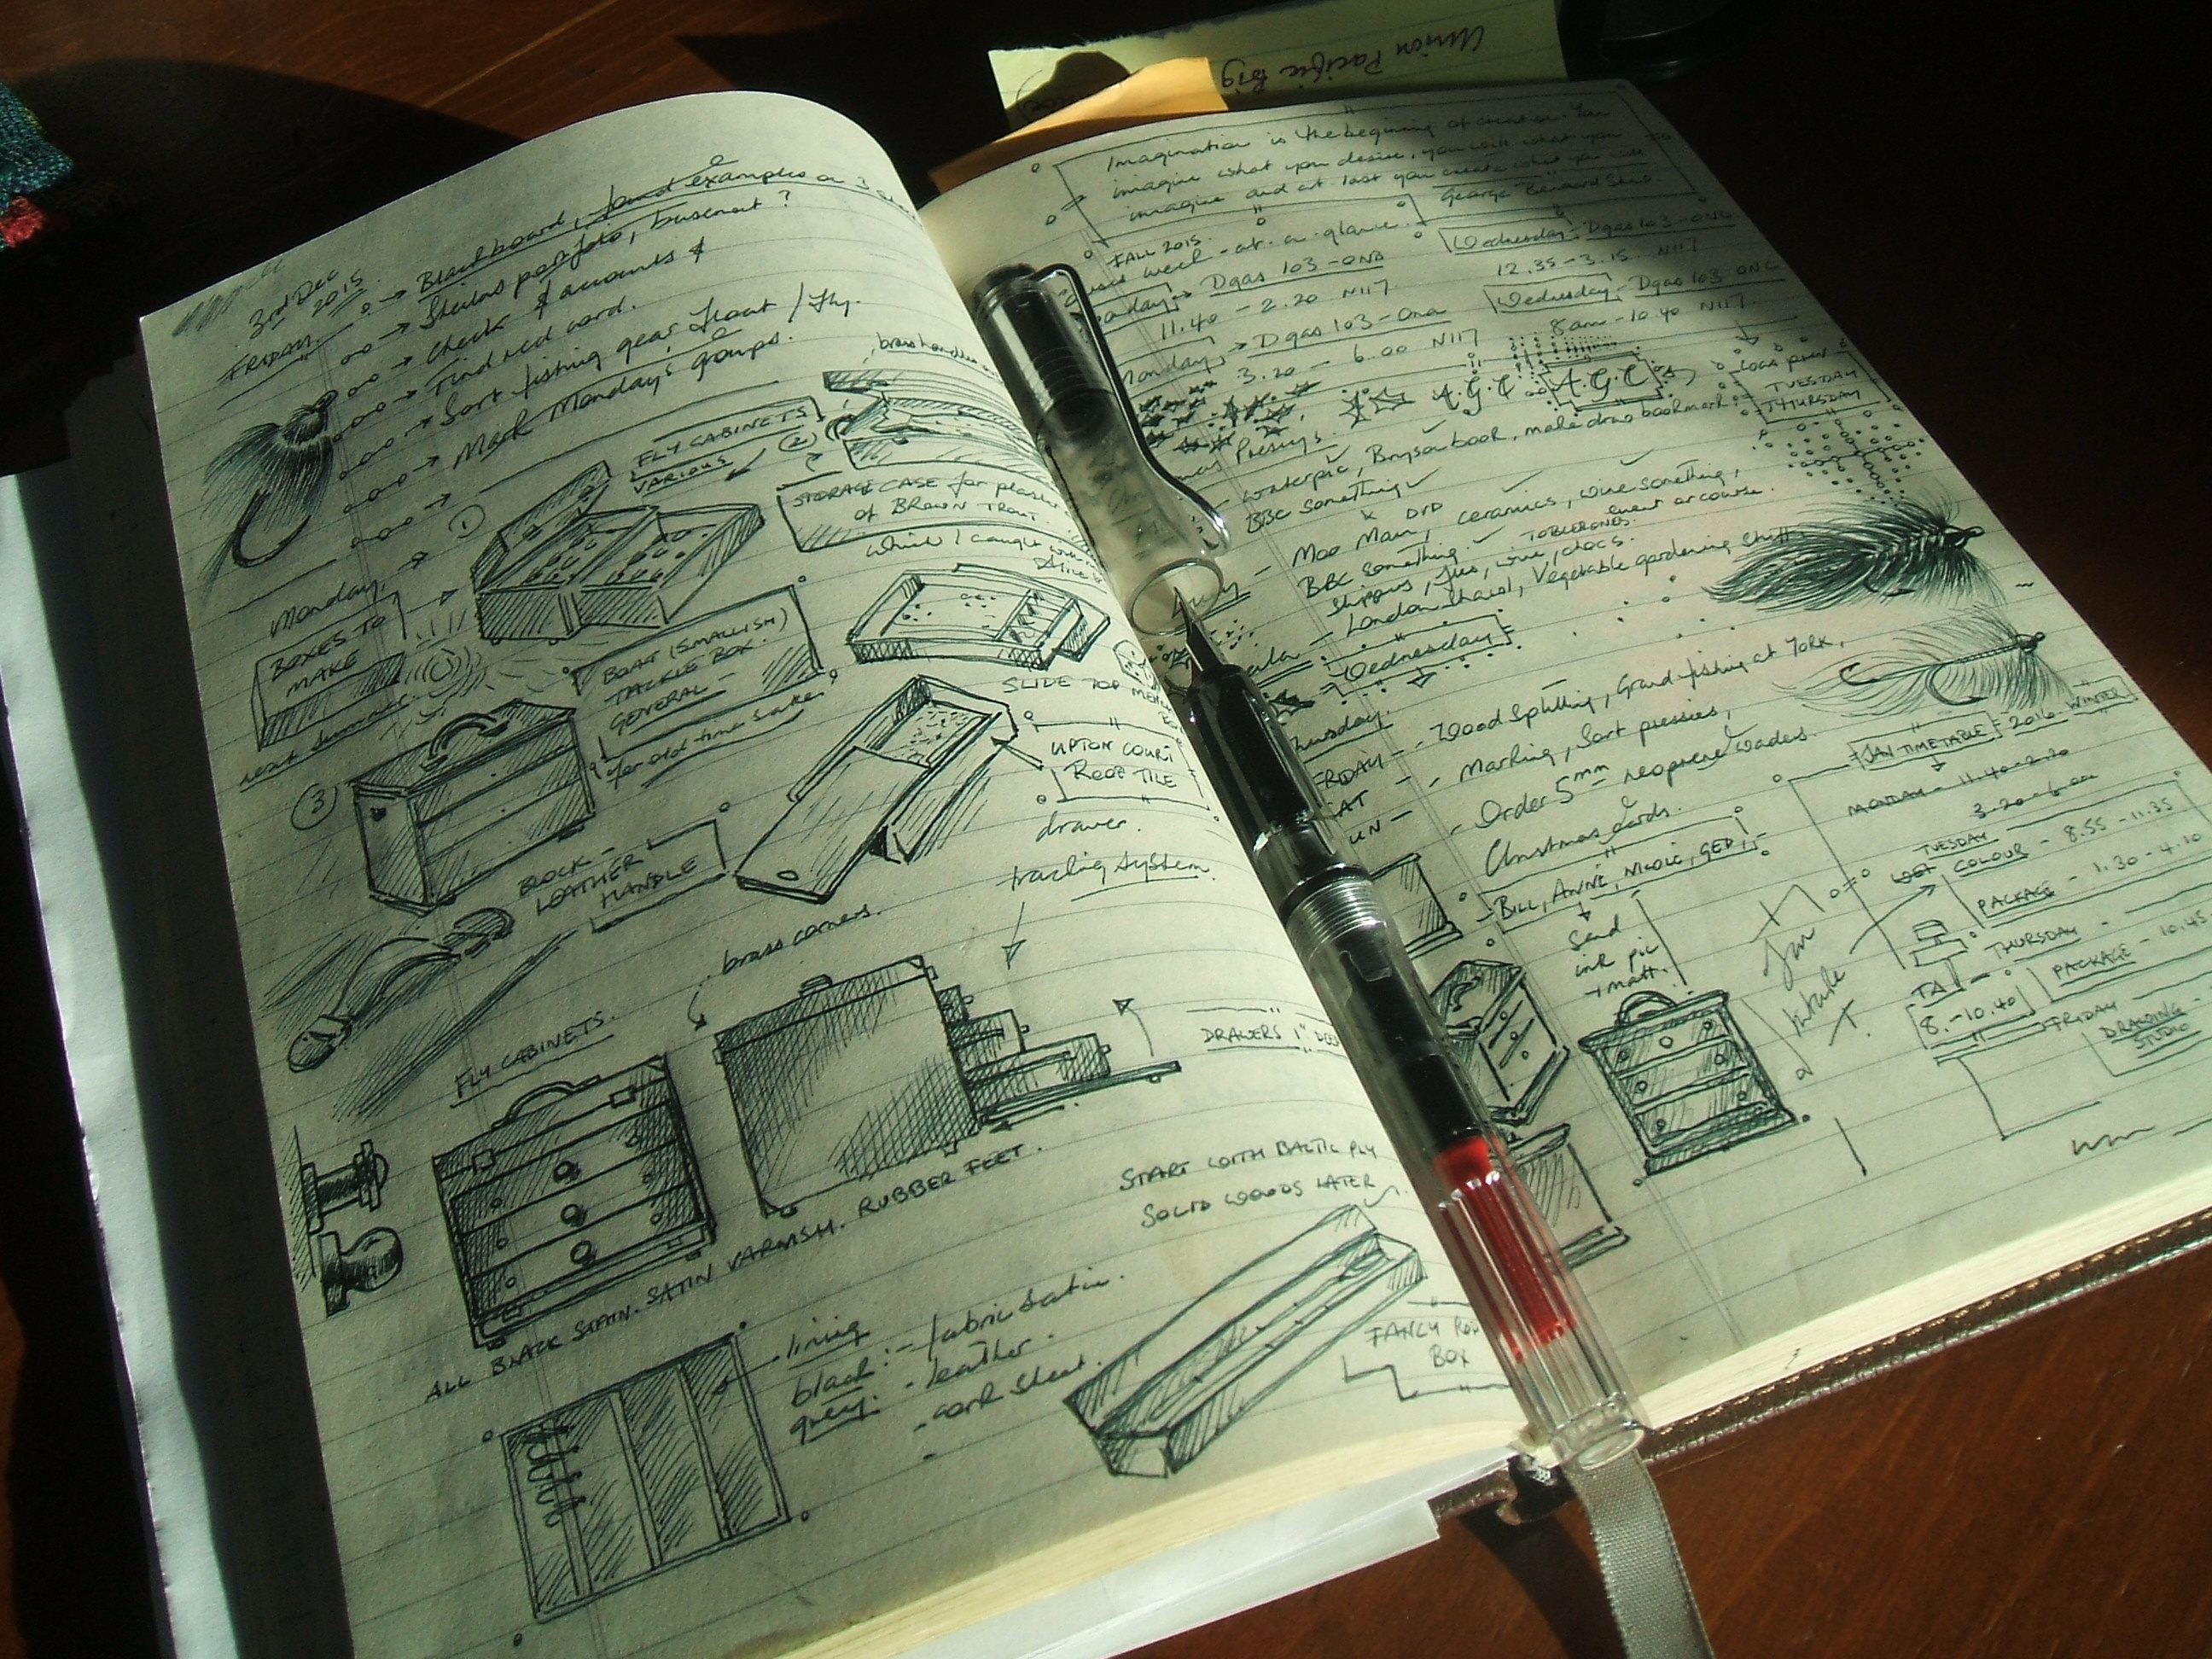 Union Pacific Big
3rd Dec
2015.
FRIDAY.
Blackboard, found examples
Sheilas portfolio, basement?
Check & accounts &
Find red card.
Sort fishing gear float / fly.
Mark Monday's groups.
brass handle
FLY CABINETS
VARIOUS
②
①
STORAGE CASE for plaster
of BROWN TROUT.
which I caught with
Monday,
BOXES TO
MAKE
next summer.
BOAT (SMALLISH)
TACKLE BOX.
GENERAL –
for old time's sake!
③
SLIDE TOP
UPTON COURT
ROOF TILE
drawer.
BLOCK –
LEATHER
HANDLE
tracing system.
brass corners.
FLY CABINETS.
DRAWERS 1"
ALL BLACK STAIN. SATIN VARNISH. RUBBER FEET.
START WITH BALTIC PLY
SOLID WOODS LATER
lining
black: – fabric satin.
grey: – leather.
– cork sheet.
FANCY ROD
BOX
Imagination is the beginning of creation. You
imagine what you desire, you will what you
imagine and at last you create what you will
George Bernard Shaw.
FALL 2015.
week-at-a-glance.
Dgas 103-ONB
11.40 – 2.20 N117.
Monday → Dgas 103-ONA
3.20 – 6.00 N117
Wednesday – Dgas 103-OND
12.35 – 3.15. N117
Wednesday – Dgas 103 ONC
8am – 10.40 N117.
A.G.C A.G.C
TUESDAY
THURSDAY
waterpic, Bryson book, make draw bookmark,
BBC something ✓
x DVD
Moo Man, ceramics, wine something,
BBC something. ✓ TOBLERONES. event or course.
slippers, wine, chocs.
London, Vegetable gardening stuff
Wednesday
Thursday.
FRIDAY – Wood splitting, Grand fishing at York,
SAT – Marking, Sort pressies,
SUN – Order 5mm neoprene waders.
Christmas Cards.
BILL, ANNE, NICOLE, GED,
Send
ink pic
+ matt.
JAN TIMETABLE 2016 WINTER
MONDAY – 11.40-2.20
3.20-6.00
TUESDAY
COLOUR – 8.55 – 11.35
PACKAGE – 1.30 – 4.10
THURSDAY –
PACKAGE – 10.45
8.–10.40
FRIDAY
DRAWING
STUDIO
Jan